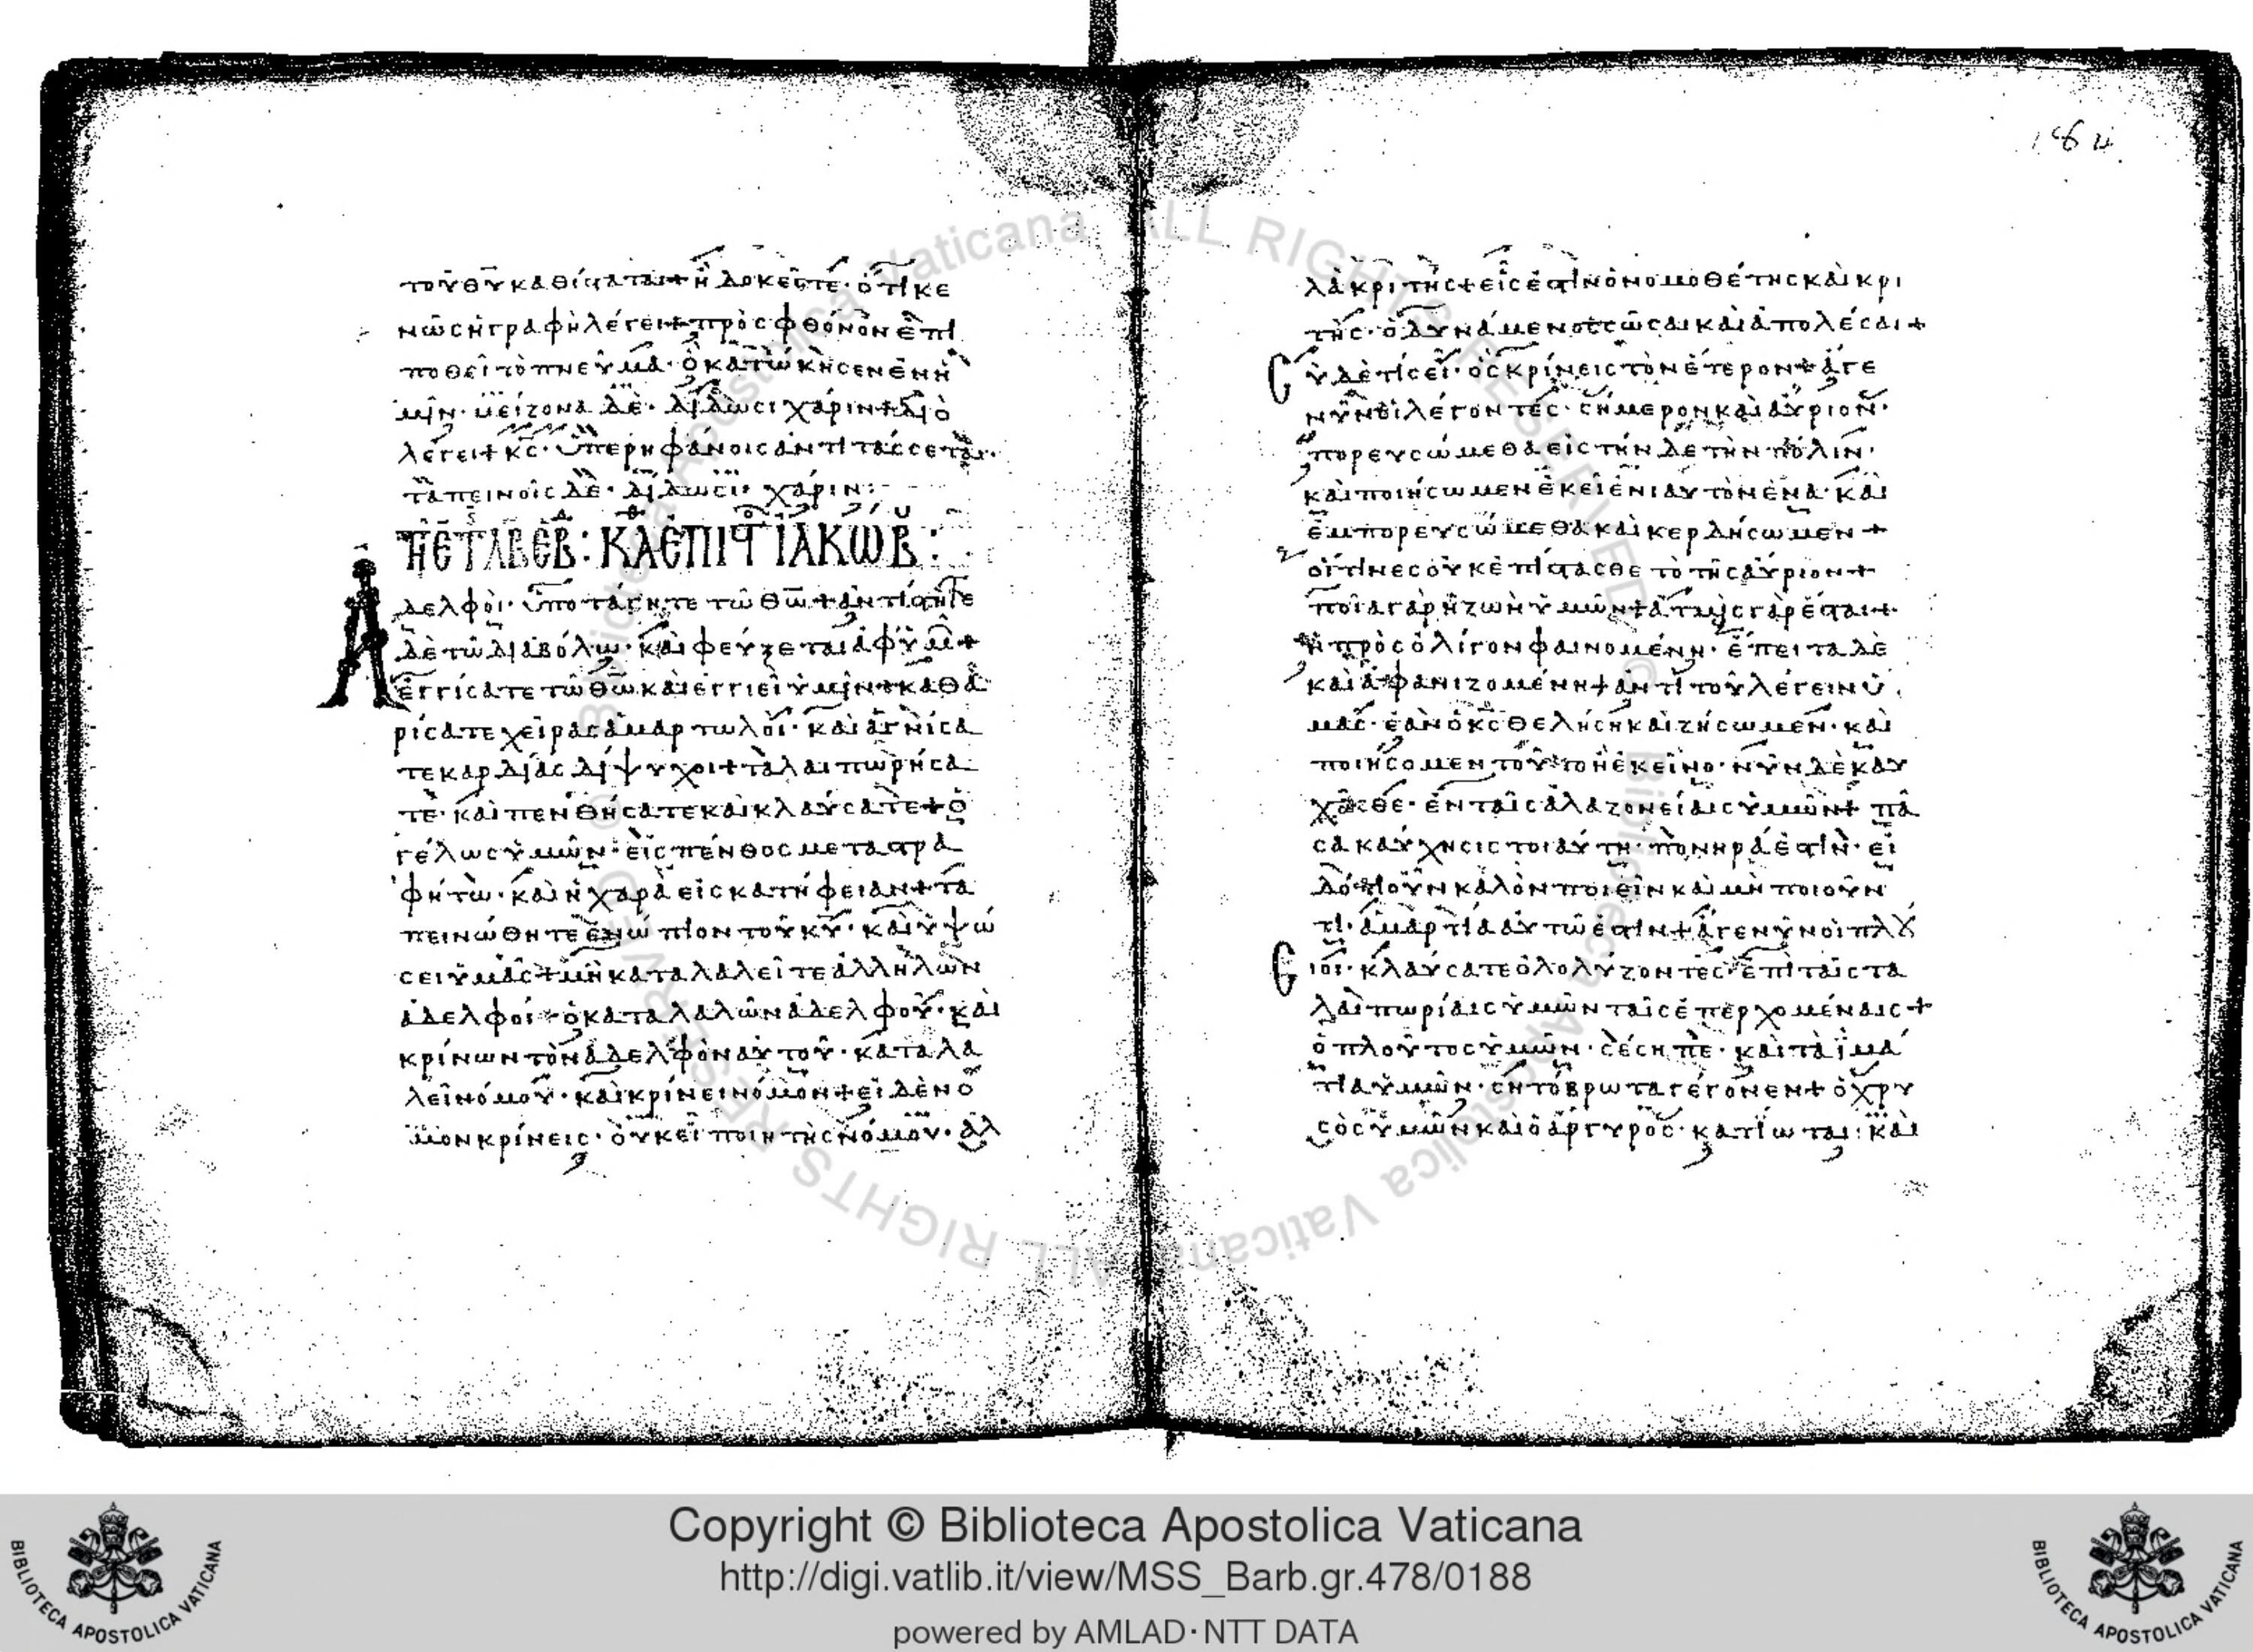 τοῦ θῦ καθίσταται + ἢ δοκεῖτε · ὅτι κε
νῶς ἡ γραφὴ λέγει + πρὸς φθόνον ἐπι
ποθεῖ τὸ πνεῦμα · ὃ κατώκησεν ἐν ἡ
μῖν · μείζονα δὲ · δίδωσι χάριν + διὸ
λέγει + κς · ὑπερηφάνοις ἀντιτάσσεται ·
ταπεινοῖς δὲ · δίδωσι · χάριν :
ἰακώβ :
Αδελφοὶ · ὑποτάγητε τῶ θῶ + ἀντίστητε
δὲ τῶ διαβόλω · καὶ φεύξεται ἀφ ὑμ +
ἐγγίσατε τῶ θῶ καὶ ἐγγιεῖ ὑμῖν + καθα
ρίσατε χεῖρας ἁμαρτωλοὶ · καὶ ἁγνίσα
τε καρδίας δίψυχοι + ταλαιπωρήσα
τε · καὶ πενθήσατε καὶ κλαύσατε + ὁ
γέλως ὑμῶν · εἰς πένθος μεταστρα
φήτω · καὶ ἡ χαρὰ εἰς κατήφειαν + τα
πεινώθητε ἐνώπιον τοῦ κῦ · καὶ ὑψώ
σει ὑμᾶς + μὴ καταλαλεῖτε ἀλλήλων
ἀδελφοί · ὁ καταλαλῶν ἀδελφοῦ · καὶ
κρίνων τὸν ἀδελφὸν αὐτοῦ · καταλα
λεῖ νόμου · καὶ κρίνει νόμον + εἰ δὲ νό
μον κρίνεις · οὐκ εἶ ποιητὴς νόμου · ἀλ
184
λὰ κριτής + εἷς ἐστὶν ὁ νομοθέτης καὶ κρι
τής · ὁ δυνάμενος σῶσαι καὶ ἀπολέσαι +
Σὺ δὲ τίς εἶ · ὃς κρίνεις τὸν ἕτερον + ἄγε
νῦν οἱ λέγοντες · σήμερον καὶ αὔριον ·
πορευσώμεθα εἰς τήνδε τὴν πόλιν ·
καὶ ποιήσωμεν ἐκεῖ ἐνιαυτὸν ἕνα · καὶ
ἐμπορευσώμεθα καὶ κερδήσωμεν +
οἵτινες οὐκ ἐπίστασθε τὸ τῆς αὔριον +
ποία γὰρ ἡ ζωὴ ὑμῶν + ἀτμὶς γὰρ ἔσται +
ἡ πρὸς ὀλίγον φαινομένη · ἔπειτα δὲ
καὶ ἀφανιζομένη + ἀντὶ τοῦ λέγειν ὑ
μᾶς · ἐὰν ὁ κς θελήση καὶ ζήσωμεν · καὶ
ποιήσομεν τοῦτο ἢ ἐκεῖνο · νῦν δὲ καυ
χᾶσθε · ἐν ταῖς ἀλαζονείαις ὑμῶν + πᾶ
σα καύχησις τοιαύτη · πονηρά ἐστιν · εἰ
δότι οὖν καλὸν ποιεῖν καὶ μὴ ποιοῦν
τι · ἁμαρτία αὐτῶ ἐστὶν + ἄγε νῦν οἱ πλού
σιοι · κλαύσατε ὀλολύζοντες · ἐπὶ ταῖς τα
λαιπωρίαις ὑμῶν ταῖς ἐπερχομέναις +
ὁ πλοῦτος ὑμῶν · σέσηπε · καὶ τὰ ἱμά
τια ὑμῶν · σητόβρωτα γέγονεν + ὁ χρυ
σὸς ὑμῶν καὶ ὁ ἄργυρος · κατίωται · καὶ
Copyright © Biblioteca Apostolica Vaticana
http://digi.vatlib.it/view/MSS_Barb.gr.478/0188
powered by AMLAD·NTT DATA
BIBLIOTECA APOSTOLICA VATICANA
BIBLIOTECA APOSTOLICA VATICANA